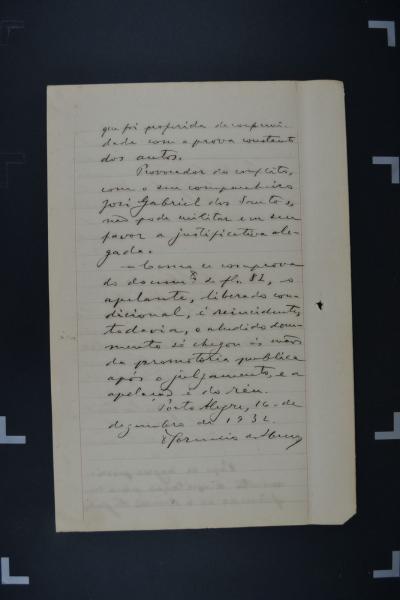 que foi proferida de conformi-
dade com a prova constante
dos autos.
Provocador do conflito,
com o seu companheiro
José Gabriel dos Santos,
não pode militar em seu
favor a justificativa ale-
gada.
Como se comprova
do docum.to de fls. 82, o
apelante, liberado con-
dicional, é reincidente,
todavia, o aludido docu-
mento só chegou ás mãos
da promotoria publica
após o julgamento, e a
apelação é do réu.
Porto Alegre, 16 de
dezembro de 1932.